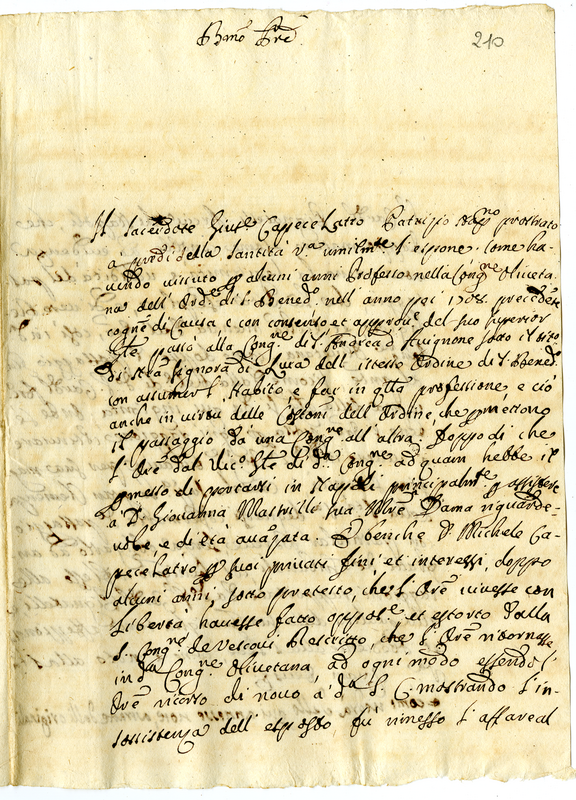 Bmo Pre
210
Il Sacerdote Giuse Capece Latro Patritio Napno prostrato
a piedi della Santità Va umilmte l'espone, come ha-
vendo vissuto p alcuni anni Professo nella Congne Oliveta
na dell' Orde di S. Benedo nell' anno poi 1708. precedte
cogne di Causa, e con consenso et approve del suo Superior
Gle passò alla Congne di S. Andrea d'Avignone sotto il tito
di Sta Signora di Luca dell' istesso Ordine di S. Benedo
con assumer l'Habito, e far in qlla professione e ciò
anche in virtù delle Costoni dell' Ordine, che pmettono
il passaggio da una Congne all' altra. Doppo di che
l' Ore dal Vico Gle di da Congne ad quam hebbe il
pmesso di portarsi in Napoli principalmte p assistere
à Da Giovanna Mastrilli sua Mre Dama riguarde-
vole e di età avazata. E benche D. Michele Ca-
pece Latro p suoi privati fini et interessi, doppo
alcuni anni, sotto pretesto, che l' Ore vivesse con
libertà havesse fatto oppose et estorto dalla
S. Congne de Vescovi Rescritto, che l' Ore ritornasse
in da Congne Olivetana, ad ogni modo essendo l'
Ore ricorso di novo à da S. C. mostrando l'in-
sossistenza dell' esposto fù rimesso l'affare al